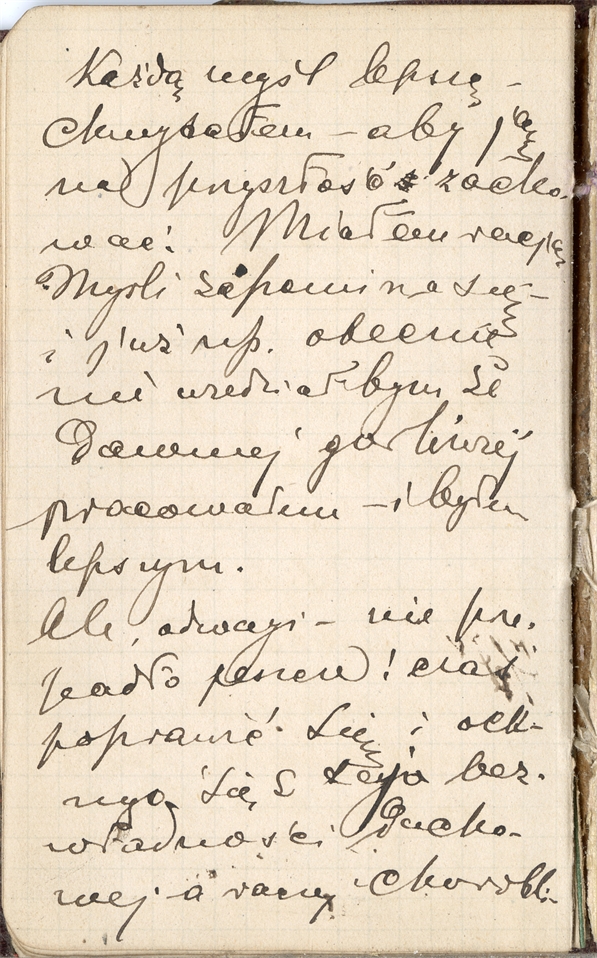 Każdą myśl lepszą –
chwytałem – aby ją
na przyszłość zacho-
wać. Miałem rację
Myśli zapomina się –
i już np. obecnie
nie wiedziałbym że
dawniej gorliwiej
pracowałem – i byłem
lepszym.
Ale, odwagi – nie prze-
padło jeszcze! czas
poprawić się i ock-
nąć się z tej bez-
władności ducho-
wej a raczej chorobli-